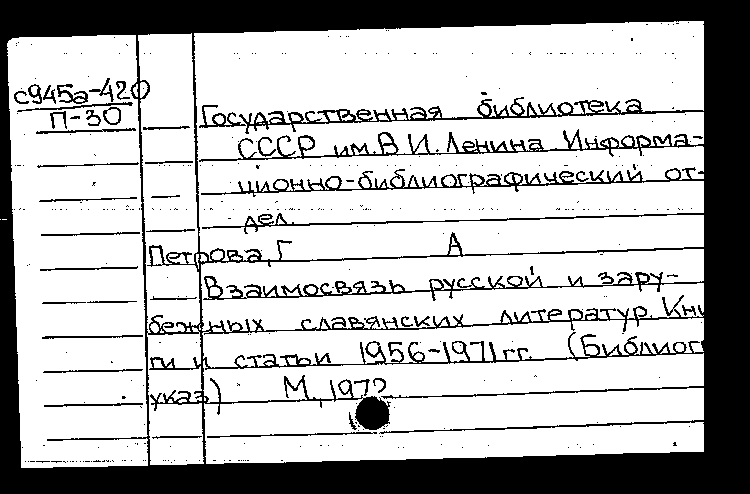 с945а-420
П-30
Государственная библиотека
СССР им. В. И. Ленина Информа-
ционно-библиографический от-
дел.
Петрова, Г А
Взаимосвязь русской и зару-
бежных славянских литератур. Кни
ги и статьи 1956-1971 гг. (Библиог
указ) М., 1972